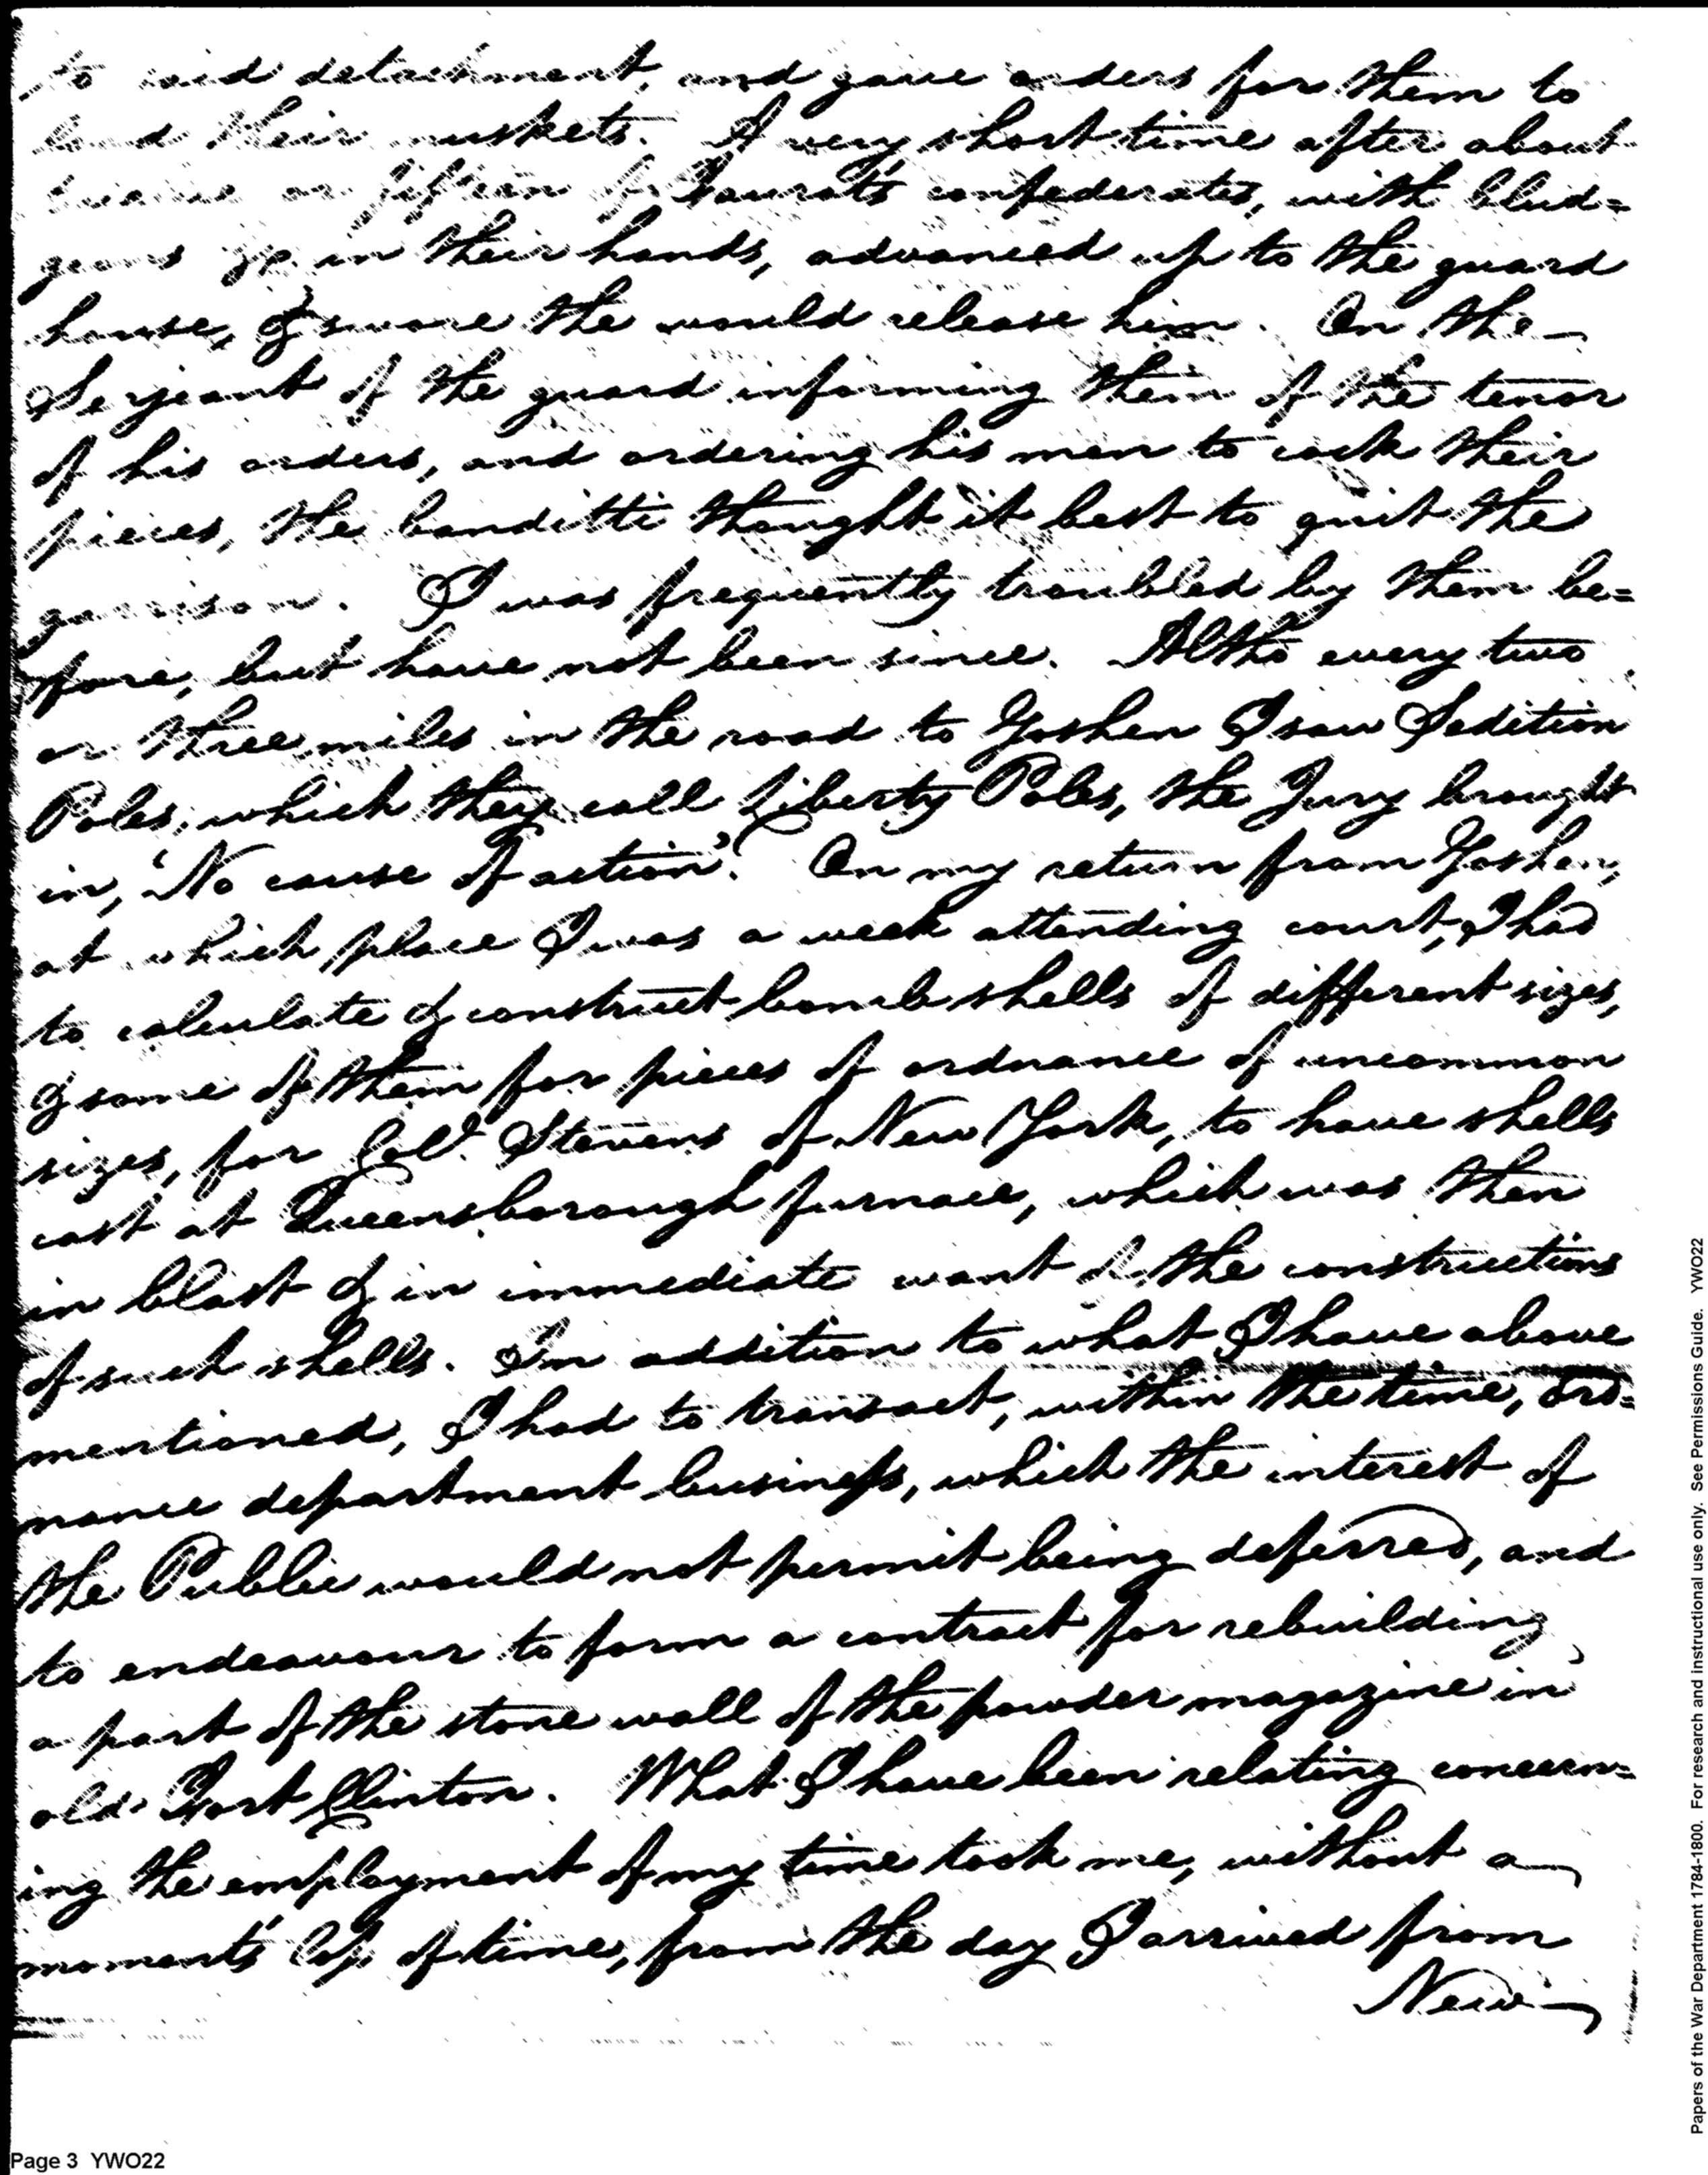 to said detachment, and gave orders for them to
load their muskets. A very short time after about
twelve or fifteen of Faurot's confederates, with blud=
geons up in their hands, advanced up to the guard
house, & swore the would release him. On the
Serjeant of the guard informing them of the tenor
of his orders, and ordering his men to cock their
pieces, the banditti thought it best to quit the
garrison. I was frequently troubled by them be=
fore, but have not been since. Altho every two
or three miles in the road to Goshen I saw Sedition
Poles, which they call Liberty Poles, the Jury brought
in, 'No cause of action'. On my return from Goshen,
at which place I was a week attending court, I had
to calculate & construct bomb shells of different sizes,
& some of them for pieces of ordnance of uncommon
sizes, for Col. Stevens of New York, to have shells
cast at Queensborough furnace, which was then
in blast & in immediate want of the constructions
of such shells. In addition to what I have above
mentioned, I had to transact, within the time, ord=
nance department business, which the interest of
the Public would not permit being deferred, and
to endeavour to form a contract for rebuilding
a part of the stone wall of the powder magazine in
old Fort Clinton. What I have been relating concern=
ing the employment of my time took me, without a
moments' of time, from the day I arrived from
New
Page 3 YWO22
Papers of the War Department 1784-1800. For research and instructional use only. See Permissions Guide. YWO22